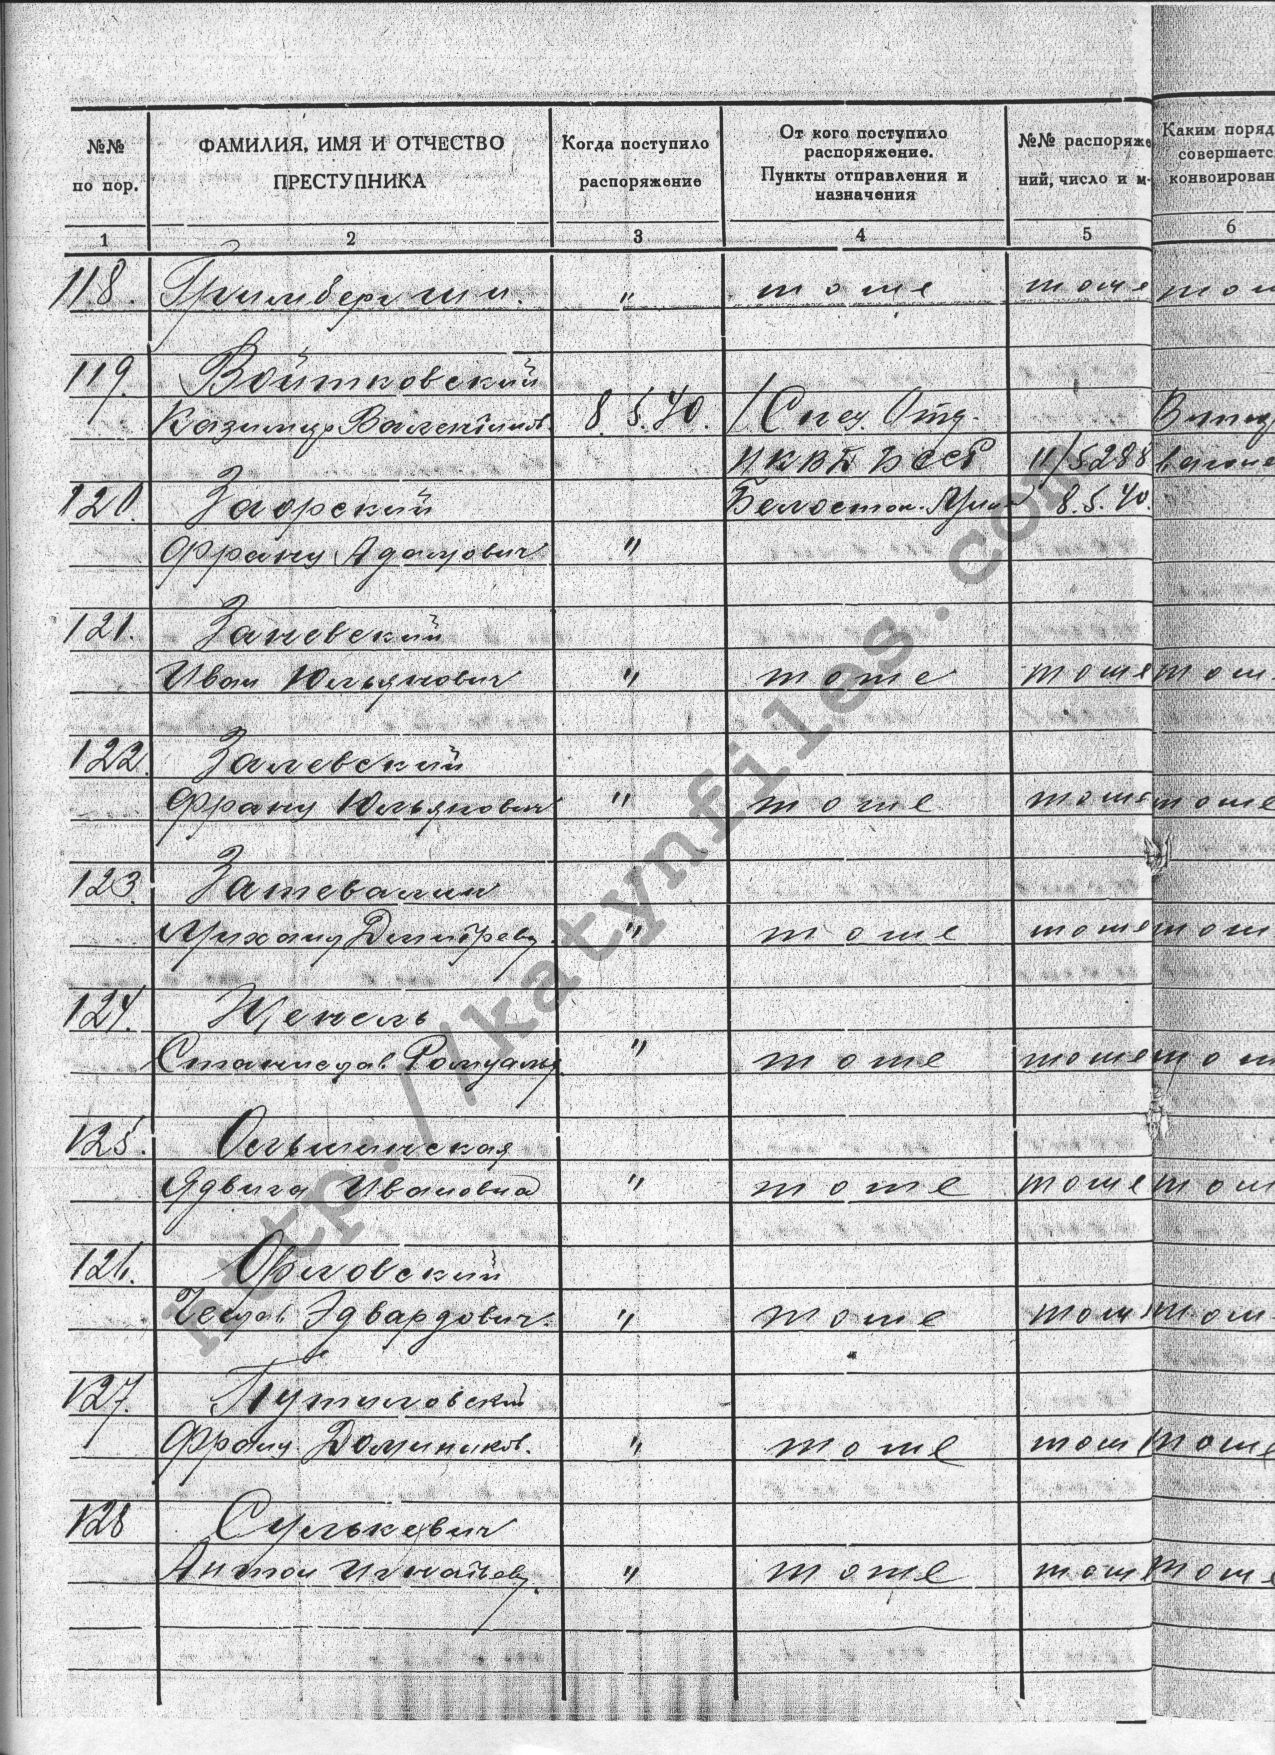 №№ по пор.
ФАМИЛИЯ, ИМЯ И ОТЧЕСТВО ПРЕСТУПНИКА
Когда поступило распоряжение
От кого поступило распоряжение. Пункты отправления и назначения
№№ распоряже ний, число и м-
Каким поряд совершаетс конвоирован
1 2 3 4 5 6
118. Гримберг ш. и. " тоже тоже тож
119. Войтковский
Казимир Валентинов. 8.5.40. 1 Спец. Отд.
НКВД БССР 11/5288 вагоне
120. Заорский Белосток. 8.5.40.
Франц Адамович "
121. Заневский
Иван Юльянович " тоже тоже тож
122. Залевский
Франц Юльянович " тоже тоже тоже
123. 
Михаил Дмитреев. " тоже тоже тож
124.
Станислав Ромуальд. " тоже тоже тож
125. Ольшинская
Ядвига Ивановна " тоже тоже тож
126. Орловский
Чеслав Эдвардович. " тоже тож тож
127. Путиловский
Франц. Домиников. " тоже тож тоже
128 Сулькевич
Антон Игнатьев. " тоже тоже тоже
http://katynfiles.com